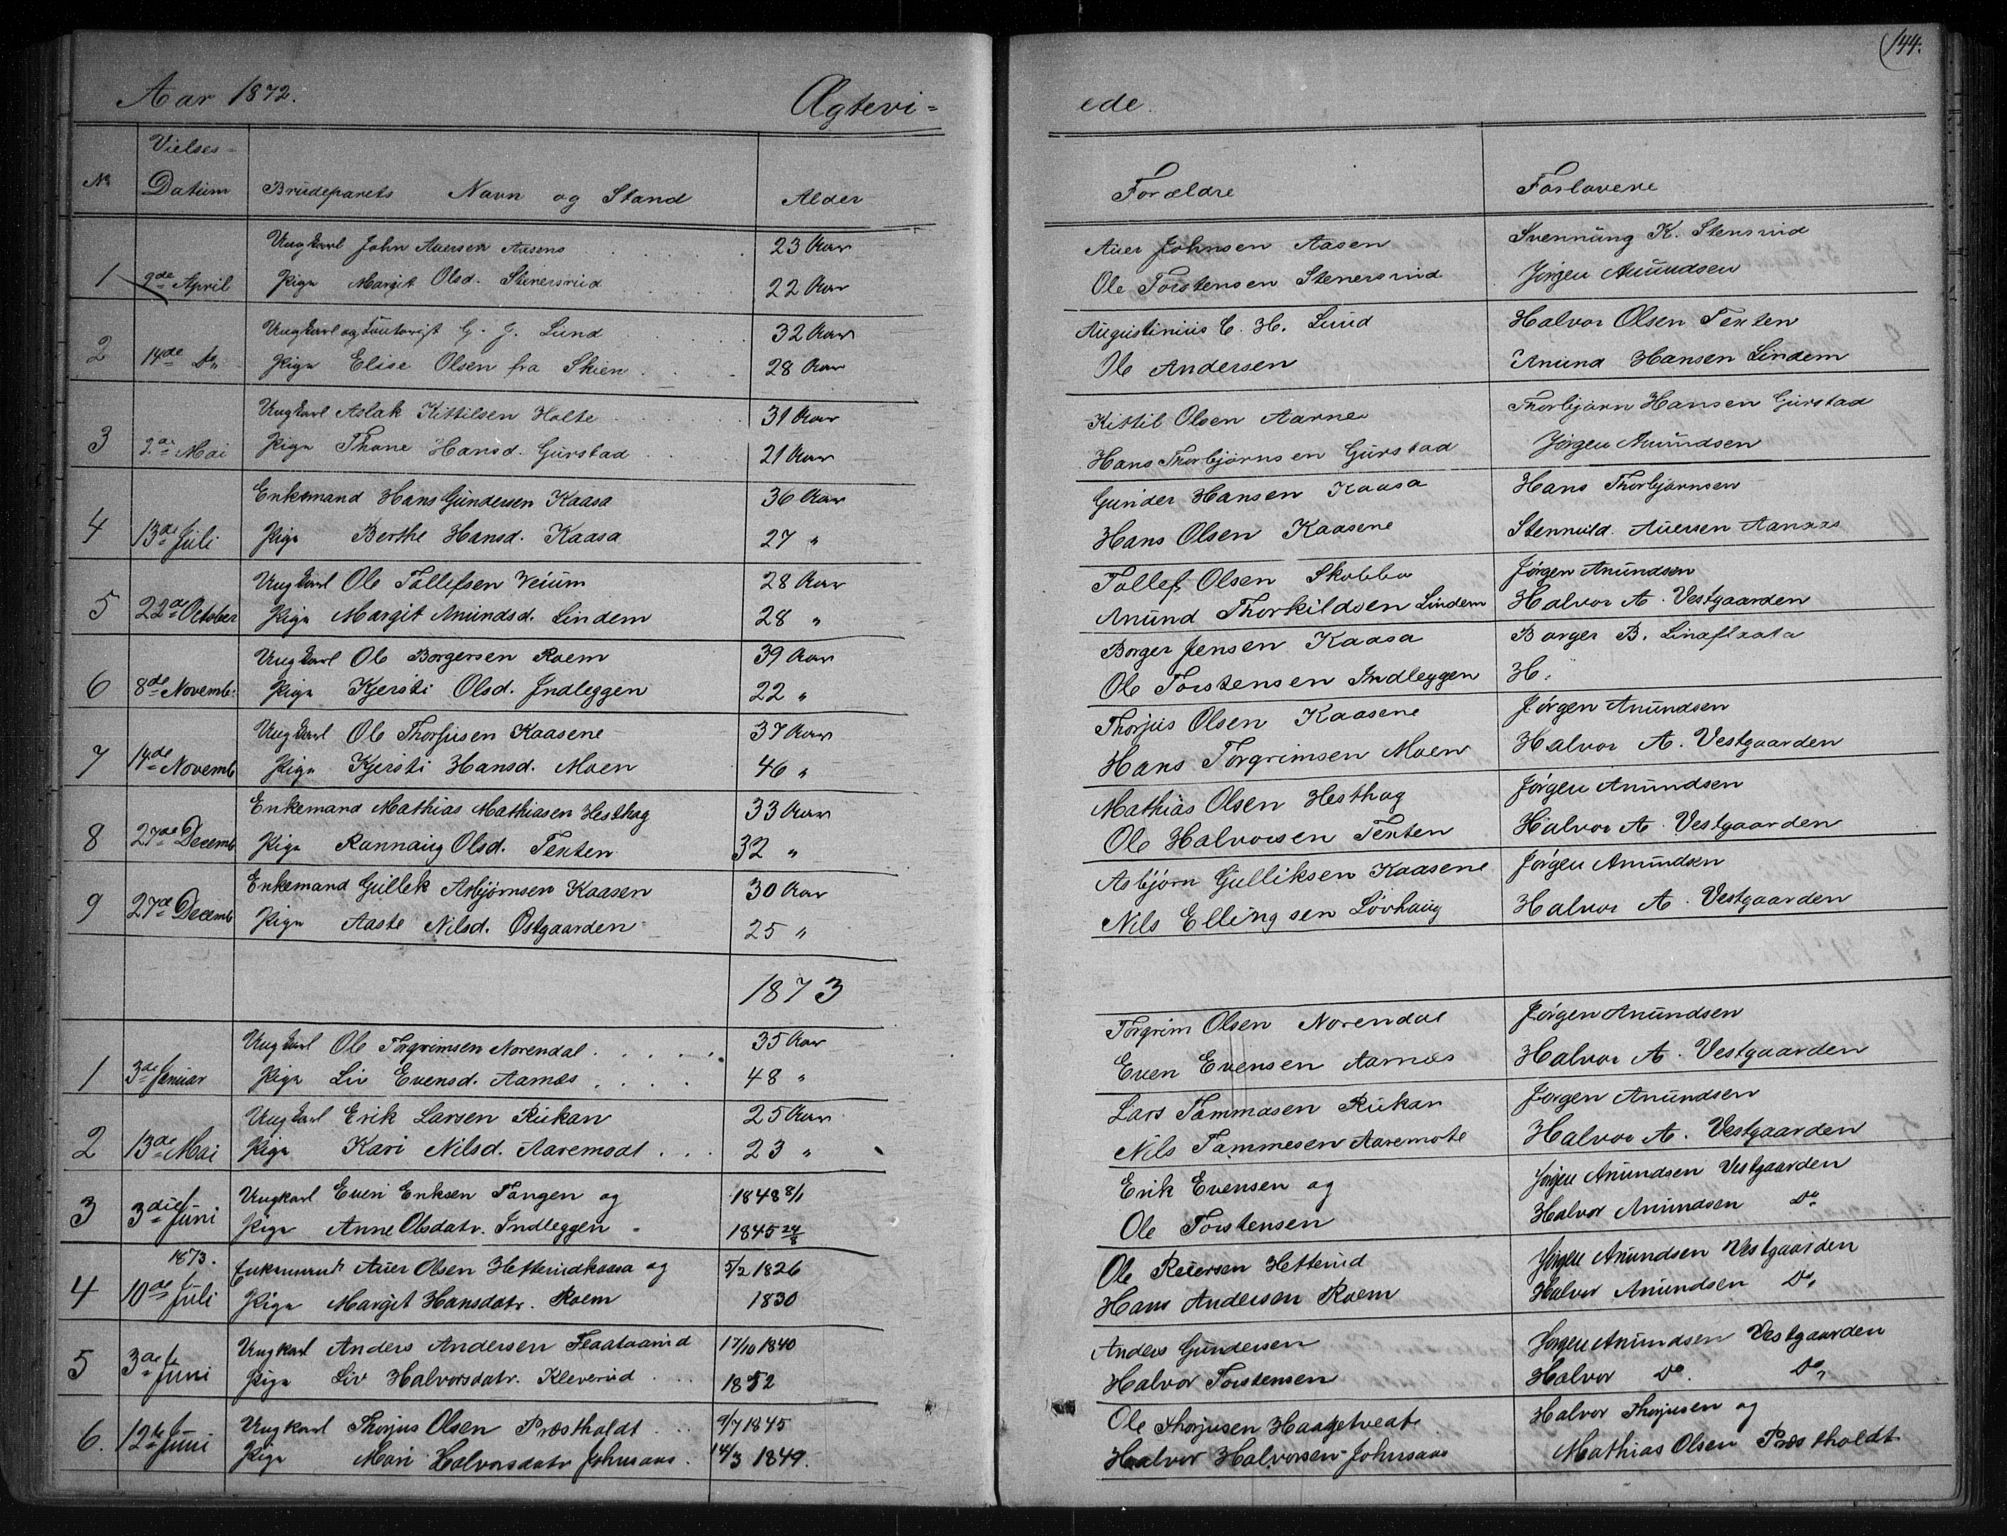 144.
Aar 1872. Ægtevi= ede.
No Vielses-Datum Brudeparets Navn og Stand Alder Forældre Forlovere
1 9de April Ungkarl John Auersen Aasens 23 Aar Auer Johnsen Aasen Svennung K. Stensrud
Pige Margit Olsd. Stenersrud 22 Aar Ole Torstensen Stenersrud Jørgen Anundsen
2 14de Do Ungkarl og G. J. Lund 32 Aar Augustinius C. H. Lund Halvor Olsen Texten
Pige Elise Olsen fra Skien 28 Aar Ole Andersen Anund Hansen Lindem
3 2de Mai Ungkarl Aslak Kittilsen Holte 31 Aar Kittil Olsen Aarnes Thorbjørn Hansen Gurstad
Pige Thone Hansd. Gurstad 21 Aar Hans Thorbjørnsen Gurstad Jørgen Anundsen
4 13de Juli Enkemand Hans Gundersen Kaasa 36 Aar Gunder Hansen Kaasa Hans Thorbjørnsen
Pige Berthe Hansd. Kaasa 27 " Hans Olsen Kaasene Stennuld. Auersen Aanæs
5 22de October Ungkarl Ole Tollefsen Veium 28 Aar Tollef Olsen Skobba Jørgen Anundsen
Pige Margit Anundsd. Lindem 28 " Anund Thorkildsen Lindem Halvor A. Vestgaarden
6 8de Novemb: Ungkarl Ole Borgersen Roem 39 Aar Borger Jensen Kaasa Borger B. Linaflaata
Pige Kjersti Olsd. Indleggen 22 " Ole Torstensen Indleggen H.
7 14de Novemb Ungkarl Ole Thorjusen Kaasene 37 Aar Thorjus Olsen Kaasene Jørgen Anundsen
Pige Kjersti Hansd. Moen 46 " Hans Torgrimsen Moen Halvor A. Vestgaarden
8 27de Decemb Enkemand Mathias Mathiasen Hesthag 33 Aar Mathias Olsen Hesthag Jørgen Anundsen
Pige Rannaug Olsd. Texten 32 " Ole Halvorsen Texten Halvor A. Vestgaarden
9 27de Decemb Enkemand Gullek Asbjørnsen Kaasen 30 Aar Asbjørn Gulliksen Kaasene Jørgen Anundsen
Pige Aaste Nilsd. Østgaarden 25 " Nils Ellingsen Løvhaug Halvor A. Vestgaarden
1873
1 3de Januar Ungkarl Ole Torgrimsen Norendal 35 Aar Torgrim Olsen Norendal Jørgen Anundsen
Pige Liv Evensd. Aarnæs 48 " Even Evensen Aarnæs Halvor A. Vestgaarden
2 13de Mai Ungkarl Erik Larsen Rukan 25 Aar Lars Tammasen Rukan Jørgen Anundsen
Pige Kari Nilsd. Aaremodt 23 " Nils Tammesen Aaremote Halvor A. Vestgaarden
3 3die Juni Ungkarl Even Eriksen Tangen og 1848 8/1 Erik Evensen og Jørgen Anundsen Vestgaarden
Pige Anne Olsdatr. Indleggen 1845 24/8 Ole Torstensen Halvor Anundsen Do
4 1873. 10de Juli Enkemand Auer Olsen Hetterudkaasa og 5/2 1826 Ole Reiersen Hetterud Jørgen Anundsen Vestgaarden
Pige Margit Hansdatr. Roem 1830 Hans Andersen Roem Halvor Anundsen Do
5 3de Juni Ungkarl Anders Andersen Flaataarud 17/10 1840 Anders Gundersen Jørgen Anundsen Vestgaarden
Pige Liv Halvorsdatr. Kleverud 1852 Halvor Torstensen Halvor Do. Do
6. 12te Juni Ungkarl Thorjus Olsen Præstholdt 9/7 1845 Ole Thorjusen Haatvedt Halvor Thorjusen og
Pige Mari Halvorsdatr Johnsaas. 14/3 1849. Halvor Halvorsen Johnsaas Mathias Olsen Præstholdt